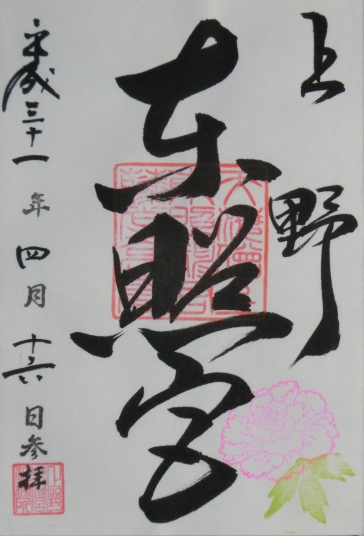 上野
東照宮
平成三十一年四月十六日参拝